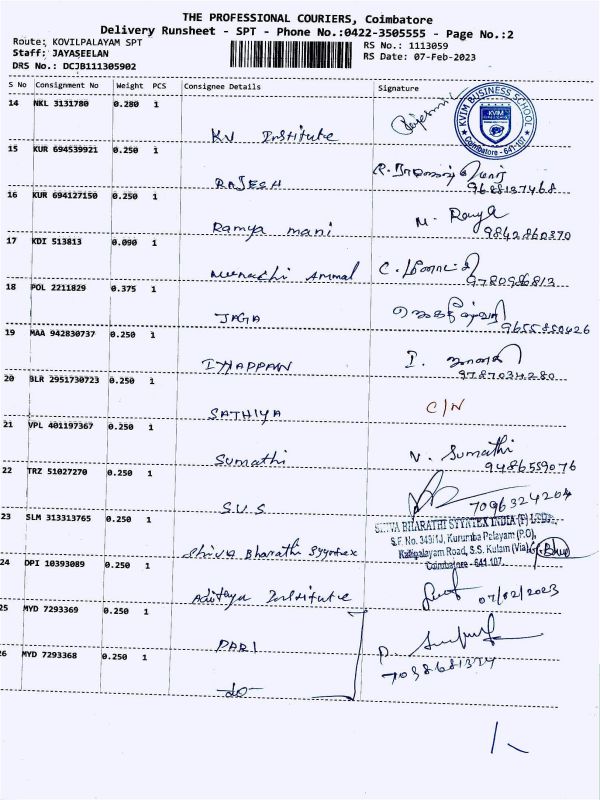 THE PROFESSIONAL COURIERS, Coimbatore
Delivery Runsheet - SPT - Phone No.:0422-3505555 - Page No.:2
Route: KOVILPALAYAM SPT
RS No.: 1113059
Staff: JAYASEELAN
RS Date: 07-Feb-2023
DRS No.: DCJB111305902
S No Consignment No Weight PCS Consignee Details Signature
14 NKL 3131780 0.280 1
KV Institute
KVIM BUSINESS SCHOOL
Coimbatore - 641 107
15 KUR 694539921 0.250 1
RAJESH
9688137468
16 KUR 694127150 0.250 1
Ramya mani M. Ramya
9842860370
17 KDI 513813 0.090 1
Meenachi Ammal C. மீனாட்சி
9780986813
18 POL 2211829 0.375 1
JAGA ஜெகதீஸ்வரி
9655850426
19 MAA 942830737 0.250 1
IYYAPPAN I.
9787034280
20 BLR 2951730723 0.250 1
SATHIYA C/N
21 VPL 401197367 0.250 1
Sumathi V. Sumathi
9486559076
22 TRZ 51027270 0.250 1
S.V.S 7096324204
23 SLM 313313765 0.250 1
SHIVA BHARATHI SYYNTEX INDIA (P) LTD.,
S.F. No. 343/1J, Kurumba Palayam (P.O),
Kattipalayam Road, S.S. Kulam (Via),
Coimbatore - 641 107.
Shiva Bharathi Syyntex
24 DPI 10393089 0.250 1
Aditaya Institute 07/02/2023
25 MYD 7293369 0.250 1
PARI
26 MYD 7293368 0.250 1
7038681374
-do-